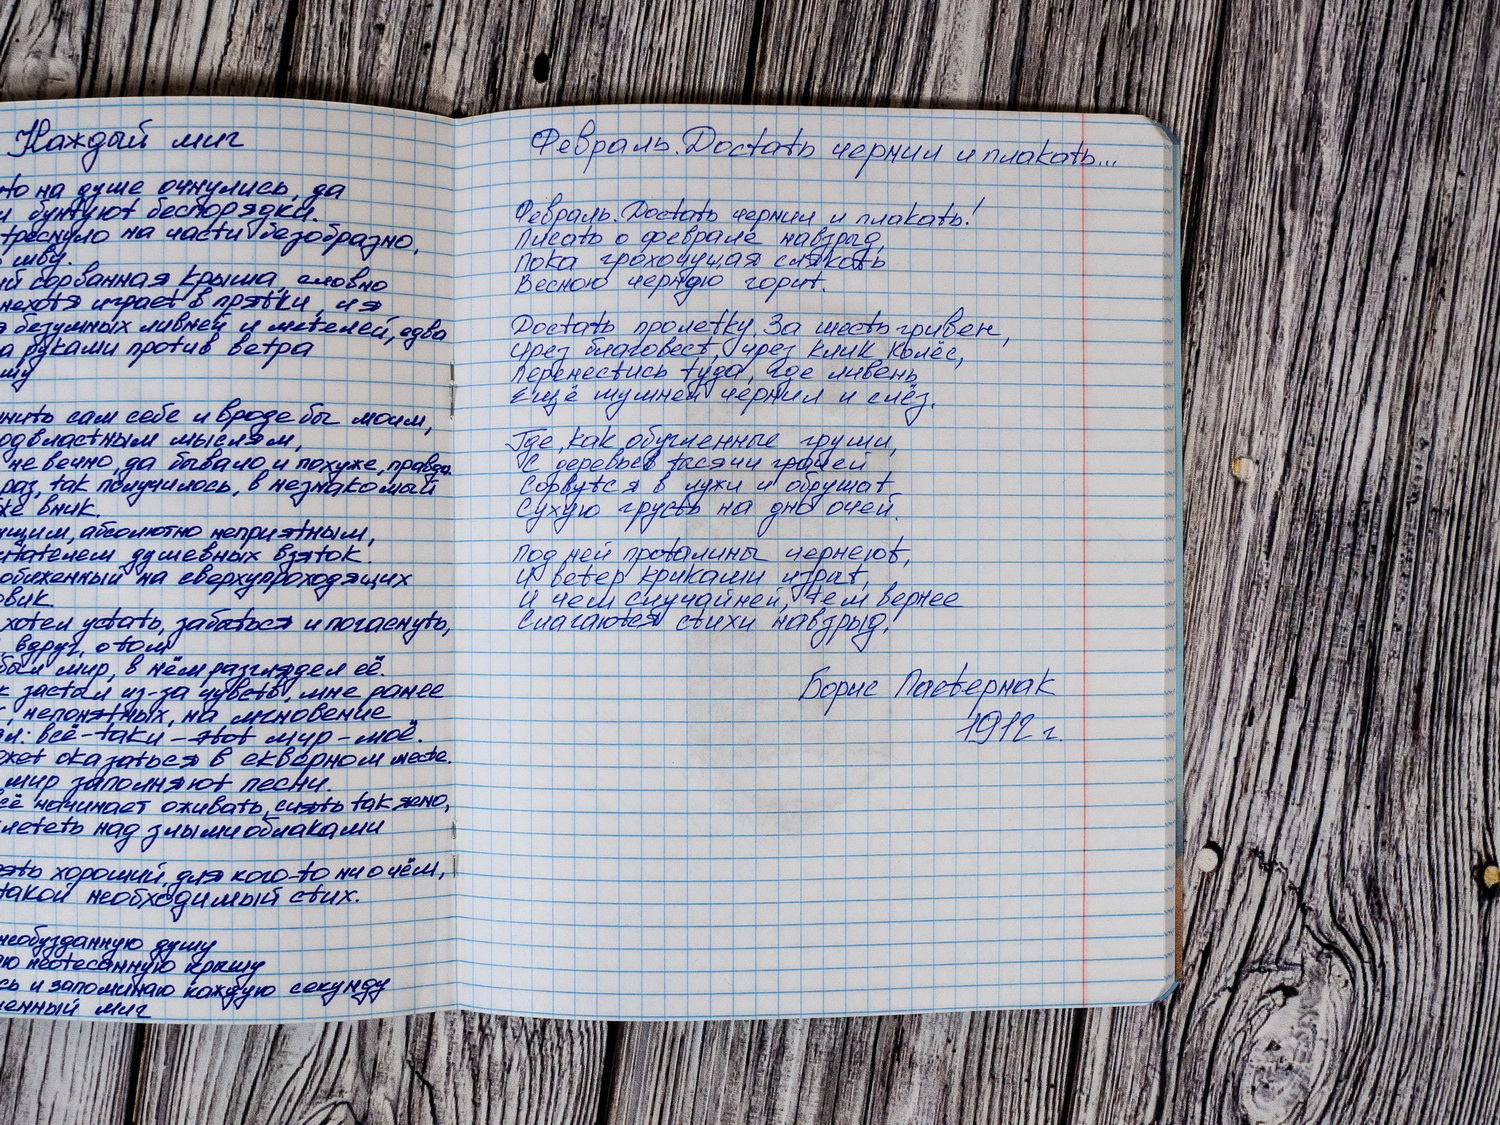 Каждый миг
на душе очнулись, да
бунтуют беспорядки.
треснуло на части безобразно,
шву.
сорванная крыша, словно
нехотя играет в прятки, и я
безумных ливней и метелей, едва
руками против ветра
сам себе и вроде бы моим,
мыслям,
не вечно, да бывало и похуже, правда
раз, так получилось, в незнакомый
вник.
абсолютно неприятным,
душевных взяток.
на сверхурроходящих
хотел устать, забаться и погаснуть,
вдруг, о том
был мир, в нём разглядел её.
застыл из-за чувств, мне ранее
непонятных, на мгновение
всё-таки – этот мир – моё.
оказаться в скверном месте.
мир заполняют песни.
начинает оживать, сиять так ясно,
над злыми облаками
хороший, для кого-то ни о чём,
такой необходимый стих.
необузданную душу
неотесанную крышу
и запоминаю каждую секунду
миг
Февраль. Достать чернил и плакать...
Февраль. Достать чернил и плакать!
Писать о феврале навзрыд,
Пока грохочущая слякоть
Весною черною горит.
Достать пролетку. За шесть гривен,
Чрез благовест, чрез клик колёс,
Перенестись туда, где ливень
Ещё шумней чернил и слёз.
Где, как обугленные груши,
С деревьев тысячи грачей
Сорвутся в лужи и обрушат
Сухую грусть на дно очей.
Под ней проталины чернеют,
И ветер криками изрыт,
И чем случайней, тем вернее
Слагаются стихи навзрыд.
Борис Пастернак
1912 г.